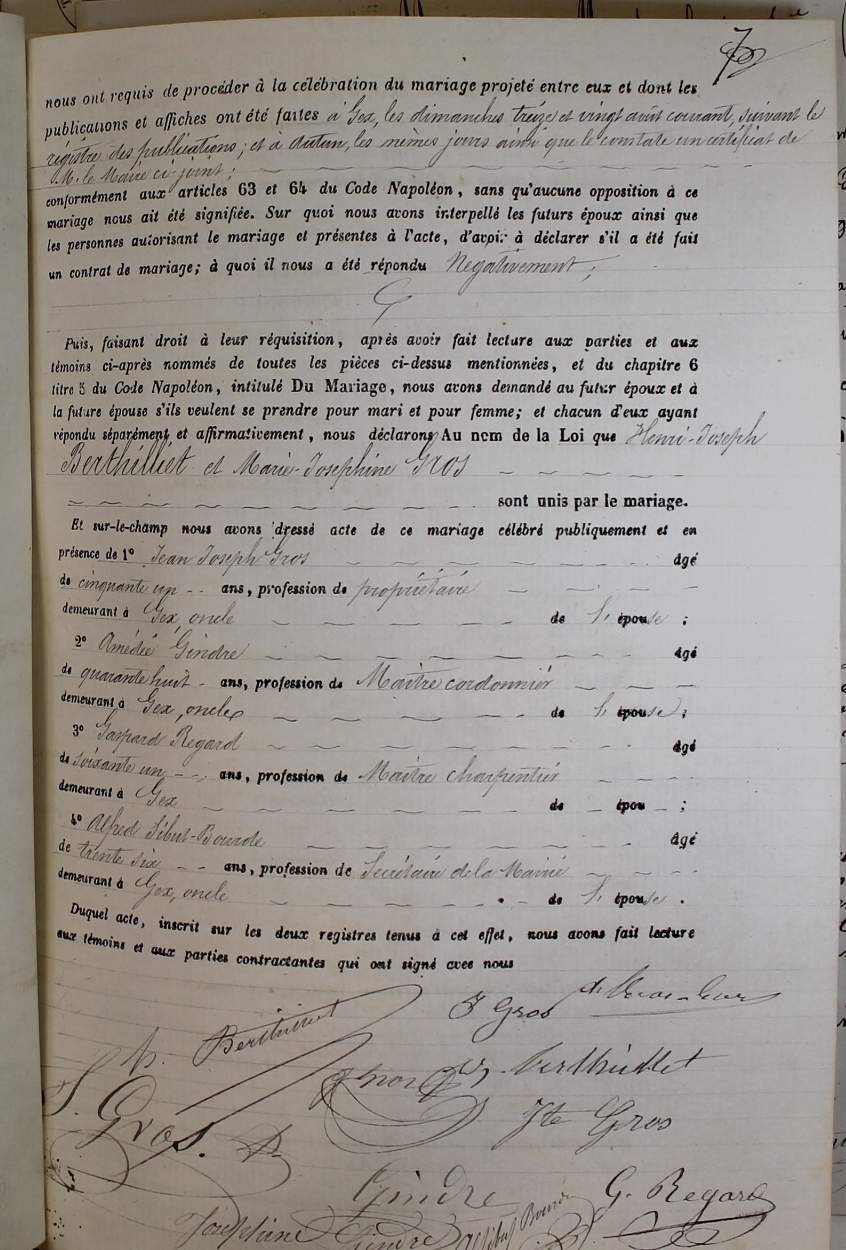 nous ont requis de procéder à la célébration du mariage projeté entre eux et dont les
publications et affiches ont été faites à Gex, les dimanches treize et vingt août courant, suivant le
régistre des publications; et à Autun, les mêmes jours ainsi que le constate un certificat de
M. le Maire ci-joint;
conformément aux articles 63 et 64 du Code Napoléon, sans qu'aucune opposition à ce
mariage nous ait été signifiée. Sur quoi nous avons interpellé les futurs époux ainsi que
les personnes autorisant le mariage et présentes à l'acte, d'avoir à déclarer s'il a été fait
un contrat de mariage; à quoi il nous a été répondu Négativement;
Puis, faisant droit à leur réquisition, après avoir fait lecture aux parties et aux
témoins ci-après nommés de toutes les pièces ci-dessus mentionnées, et du chapitre 6
titre 5 du Code Napoléon, intitulé Du Mariage, nous avons demandé au futur époux et à
la future épouse s'ils veulent se prendre pour mari et pour femme; et chacun d'eux ayant
répondu séparément et affirmativement, nous déclarons Au nom de la Loi que Henri-Joseph
Berthilliet et Marie-Josephine Gros
sont unis par le mariage.
Et sur-le-champ nous avons dressé acte de ce mariage célébré publiquement et en
présence de 1° Jean Joseph Gros âgé
de cinquante un ans, profession de propriétaire
demeurant à Gex, oncle de l'épouse;
2° Amédée Gindre âgé
de quarante huit ans, profession de Maître cordonnier
demeurant à Gex, oncle de l'épouse;
3° Gaspard Regard âgé
de soixante un ans, profession de Maître charpentier
demeurant à Gex de épou;
4° Alfred Sibut-Bourde âgé
de trente six ans, profession de Secrétaire de la Mairie
demeurant à Gex, oncle de l'épouse.
Duquel acte, inscrit sur les deux registres tenus à cet effet, nous avons fait lecture
aux témoins et aux parties contractantes qui ont signé avec nous
J Gros
h. Berthilliet
Berthilliet
J. Gros.
Jte Gros
Gindre G. Regard
Josephine Gindre A Sibut Bourde